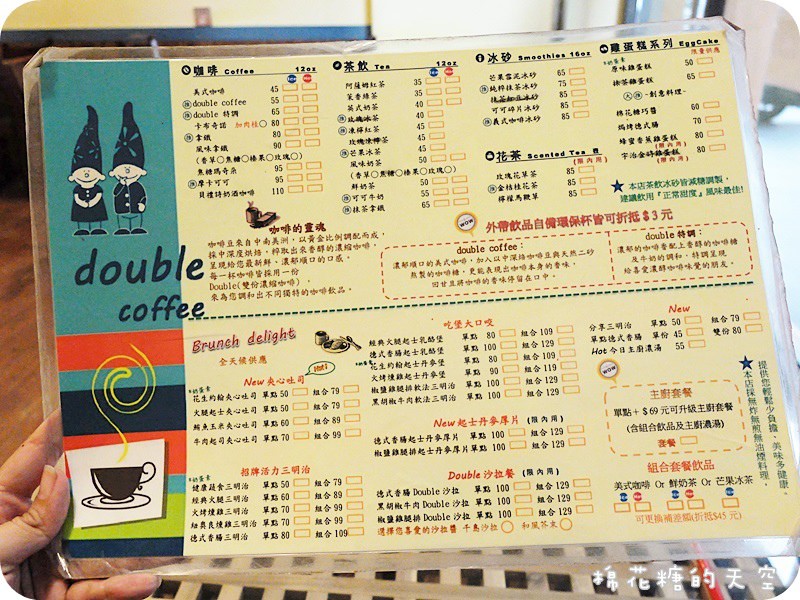 咖啡 Coffee 12oz
美式咖啡 45
double coffee 55
double 特調 65
卡布奇諾 加肉桂 80
拿鐵 80
風味拿鐵 90
(香草 焦糖 榛果 玫瑰)
焦糖瑪奇朵 95
摩卡可可 95
貝禮特奶酒咖啡 110
茶飲 Tea 12oz
阿薩姆紅茶 35
茉香綠茶 35
英式奶茶 40
玫瑰冰茶
凍檸紅茶 40
玫瑰凍檸茶
芒果冰茶 40
風味奶茶 50
(香草 焦糖 榛果 玫瑰)
鮮奶茶 50
可可牛奶 55
抹茶拿鐵 65
冰砂 Smoothies 16oz
芒果雪泥冰砂 65
純粹抹茶冰砂 75
抹茶紅豆冰砂
可可碎片冰砂 65
義式咖啡冰砂 85
花茶 Scented Tea
(限內用)
玫瑰花草茶 85
金桔桂花茶 85
檸檬馬鞭草 85
雞蛋糕系列 EggCake
限量供應
原味雞蛋糕 50
抹茶雞蛋糕 65
-創意料理-
棉花糖巧醬 60
焗烤德式腸 70
蜂蜜香蕉雞蛋糕 80
(限內用)
宇治金時雞蛋糕 80
(限內用)
★本店茶飲冰砂皆減糖調製,
建議飲用『正常甜度』風味最佳!
WOW
外帶飲品自備環保杯皆可折抵$3元
咖啡的靈魂
咖啡豆來自中南美洲,以黃金比例調配而成,
採中深度烘焙,粹取出來香醇的濃縮咖啡,
呈現給您最新鮮、濃郁順口的口感。
每一杯咖啡皆採用一份
Double(雙份濃縮咖啡),
來為您調和出不同獨特的咖啡飲品。
double coffee:
濃郁順口的美式咖啡,加入以中深焙咖啡豆與天然二砂
熬製的咖啡糖,更能表現出咖啡本身的香味,
回甘且將咖啡的香味停留在口中。
double 特調:
濃郁的咖啡香配上香醇的咖啡糖
及牛奶的調和,特調呈現
給喜愛濃醇咖啡味覺的朋友。
double
coffee
Brunch delight
全天候供應
Hot!
New夾心吐司
花生約翰夾心吐司 單點 50 組合 79
火腿起士夾心吐司 單點 50 組合 79
鮪魚玉米夾心吐司 單點 60 組合 89
牛肉起司夾心吐司 單點 70 組合 99
招牌活力三明治
健康蔬食三明治 單點 50 組合 79
經典火腿三明治 單點 60 組合 89
火烤燻雞三明治 單點 60 組合 89
紐奧良燻雞三明治 單點 70 組合 99
德式香腸三明治 單點 80 組合 109
吃堡大口咬
經典火腿起士乳酪堡 單點 80 組合 109
德式香腸起士乳酪堡 單點 100 組合 129
花生約翰起士丹麥堡 單點 80 組合 109
火烤燻雞起士丹麥堡 單點 90 組合 119
椒鹽雞腿排軟法三明治 單點 100 組合 129
黑胡椒牛肉軟法三明治 單點 100 組合 129
New起士丹麥厚片 (限內用)
德式香腸起士丹麥厚片 單點 100 組合 129
椒鹽雞腿排起士丹麥厚片 單點 100 組合 129
Double沙拉餐 (限內用)
德式香腸Double沙拉 單點 100 組合 129
黑胡椒牛肉Double沙拉 單點 100 組合 129
椒鹽雞腿排Double沙拉 單點 100 組合 129
選擇您喜愛的沙拉醬 千島沙拉 和風芥末
New
分享三明治 單點 50 組合 79
單點德式香腸 單份 45 雙份 80
Hot 今日主廚濃湯 55
WOW
主廚套餐
單點+$69元可升級主廚套餐
(含組合飲品及主廚濃湯)
套餐
組合套餐飲品
美式咖啡 Or 鮮奶茶 Or 芒果冰茶
可更換補差額(折抵$45元)
★提供您輕鬆少負擔、美味多健康,
本店採無炸無煎無油煙料理。
棉花糖的天空